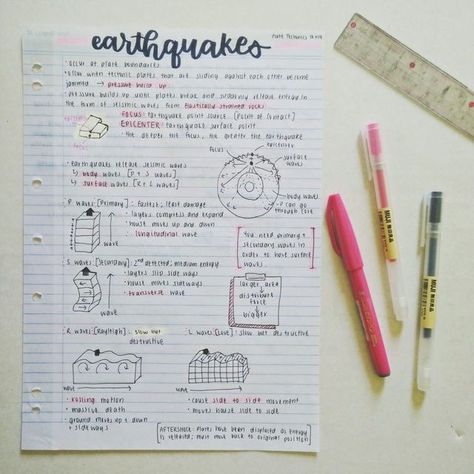 Plate Tectonics
earthquakes
· occur at plate boundaries
· occur when tectonic plates that are sliding against each other become
jammed → pressure builds up
· pressure builds up until plates break and suddenly release energy in
the form of seismic waves from elastically strained rocks
FOCUS: earthquake point source [point of contact]
EPICENTER: earthquake surface point
· the deeper the focus, the greater the earthquake
epicenter
focus
focus
epicenter
surface wave
· earthquakes release seismic waves
↳ body waves [P + S waves]
↳ surface waves [R + L waves]
body waves
P can go through core
· P. waves [Primary]: fastest, least damage
· layers compress and expand
· house moves up and down
· longitudinal wave
wave
[you need primary +
secondary waves in
order to have surface
waves]
· S. waves [Secondary]: 2nd detected; medium energy
· layers slip sideways
· house moves sideways
· transverse wave
wave
larger area
=
distribute
force
=
bigger
R. waves [Rayleigh]: slow but
destructive
wave
· rolling motion
· massive death
· ground moves up + down
+ sideways
L. waves [Love]: slow but destructive
wave
· cause side to side movement
· moves house side to side
[AFTERSHOCK: plates have been displaced as energy
is released; must move back to original position]
MUJI MORA
MUJI MORA